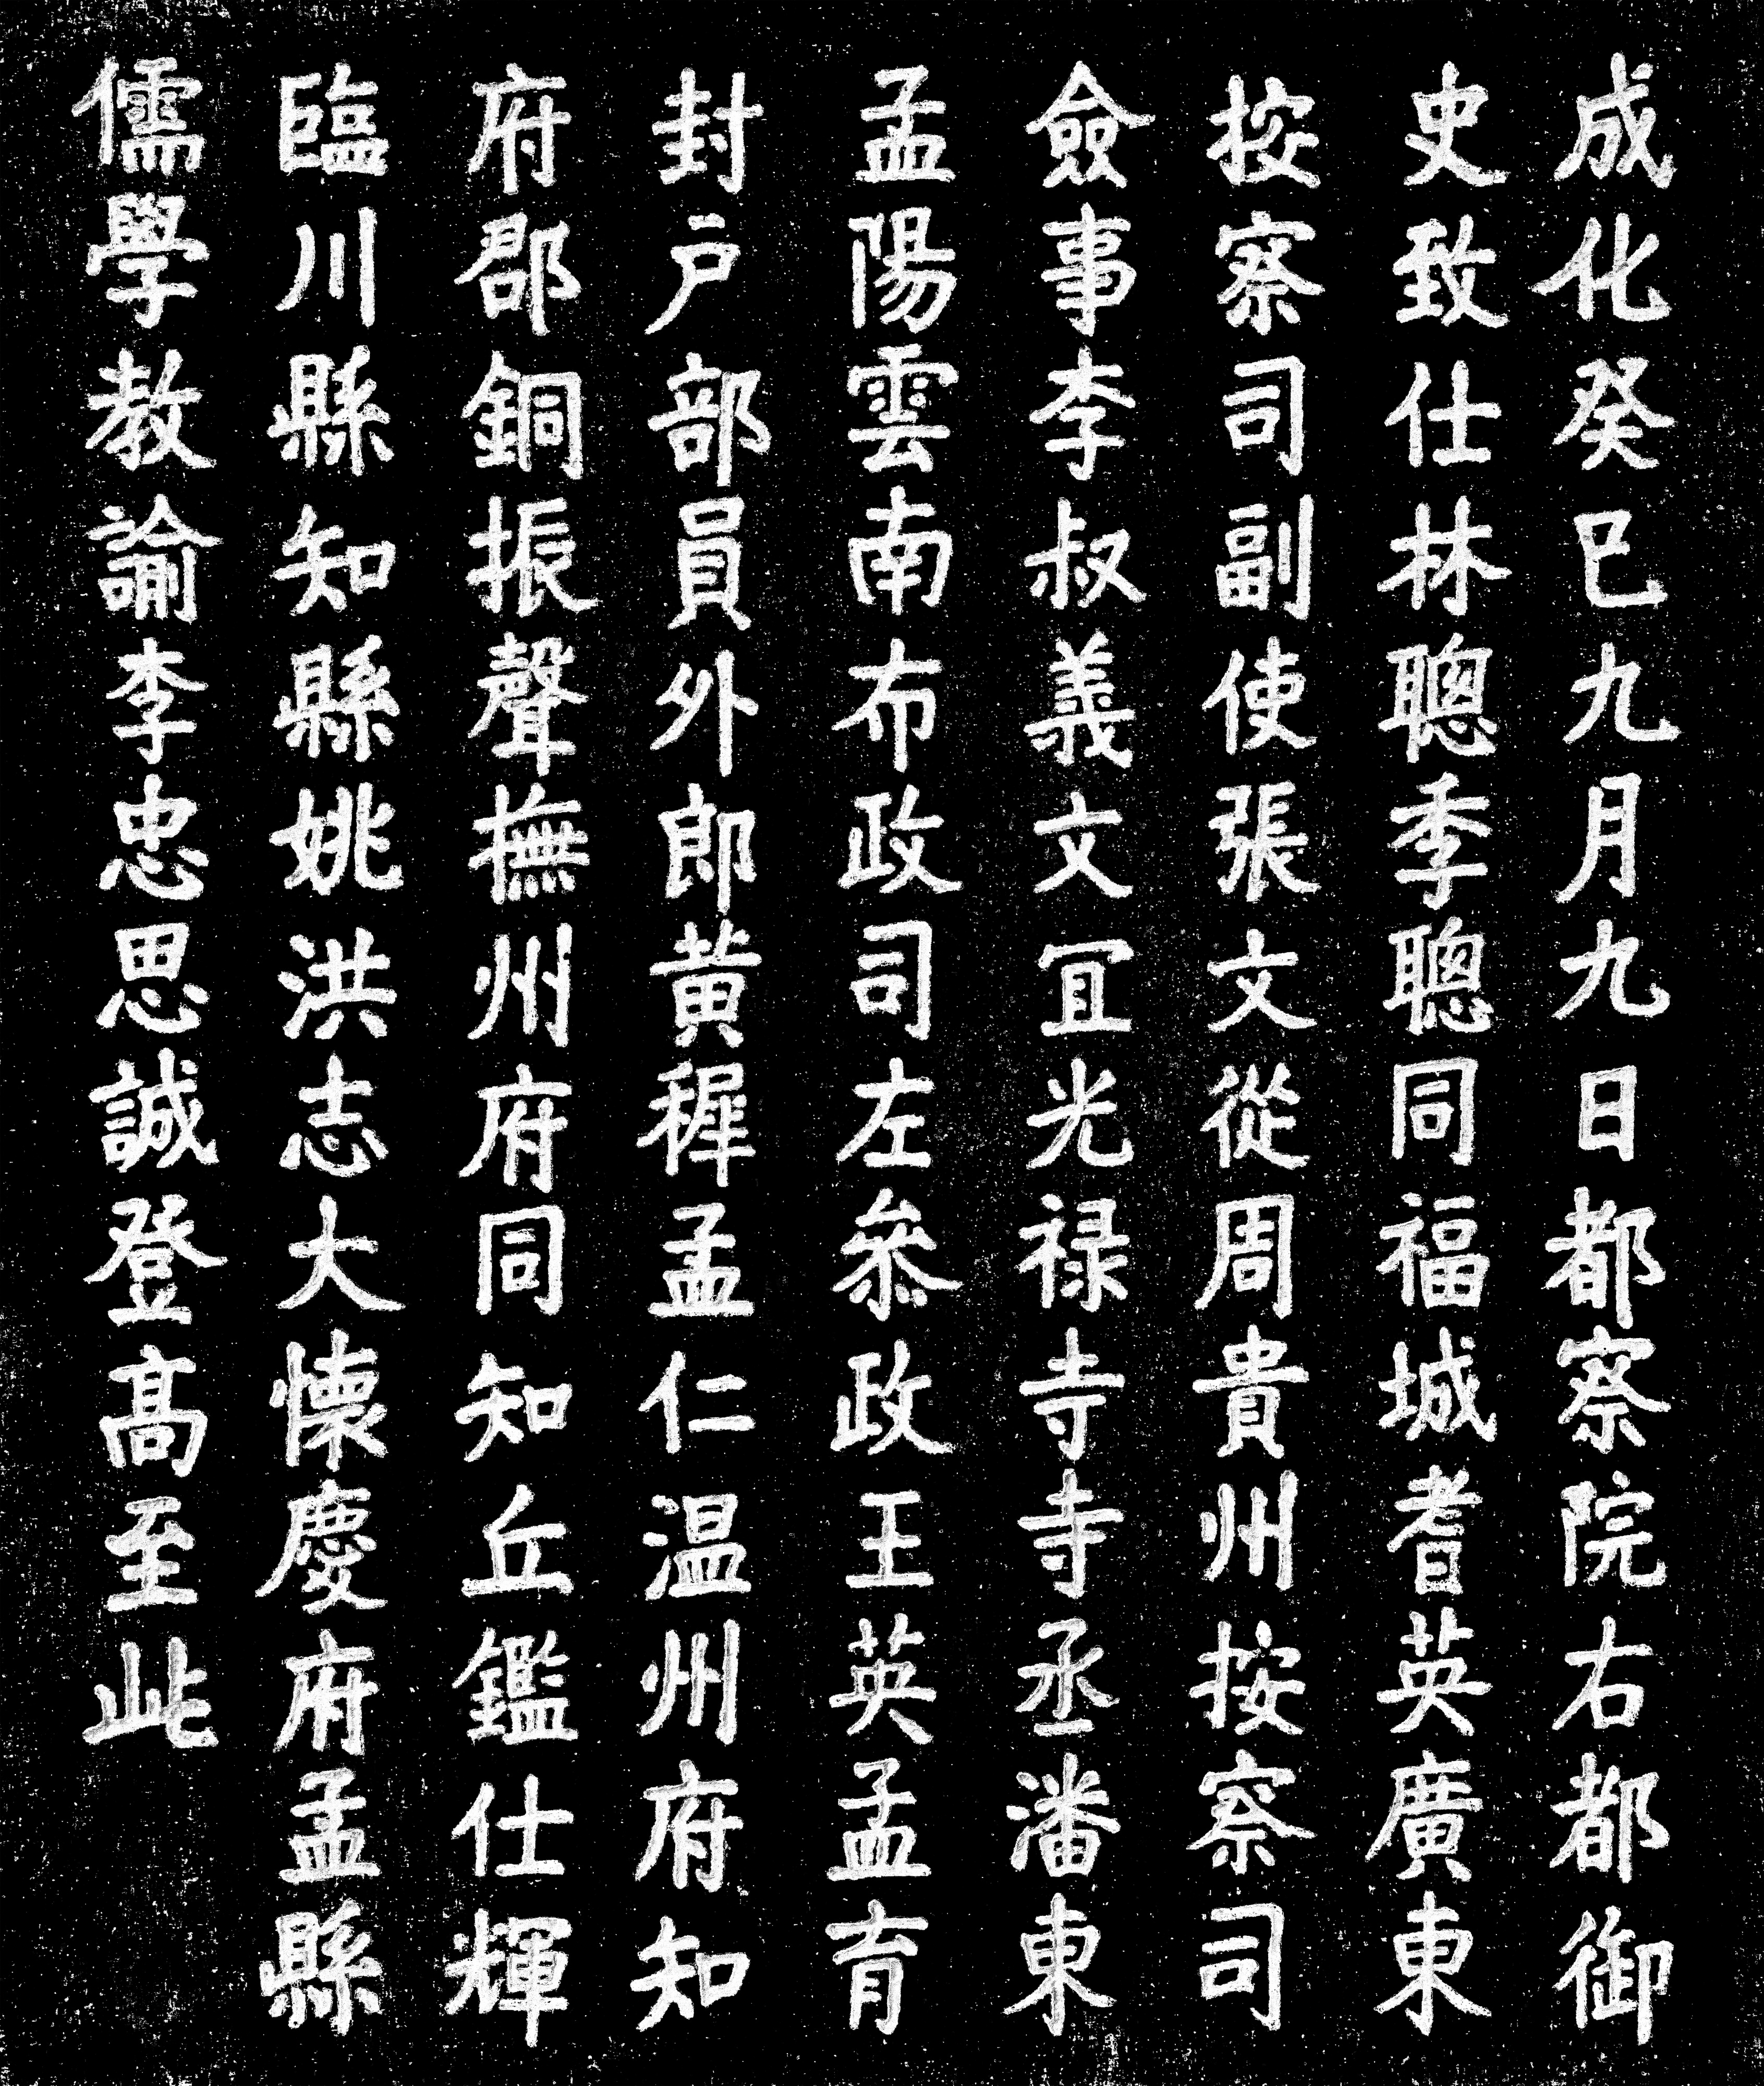 成化癸巳九月九日都察院右都御
史致仕林聰季聰同福城耆英廣東
按察司副使張文從周貴州按察司
僉事李叔義文宜光禄寺寺丞潘東
孟陽雲南布政司左叅政王英孟育
封户部員外郎黄穉孟仁温州府知
府郡銅振聲撫州府同知丘鑑仕輝
臨川縣知縣姚洪志大懷慶府孟縣
儒學教諭李忠思誠登髙至此